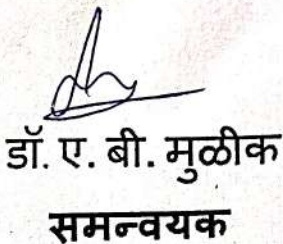 डॉ. ए. बी. मुळीक
समन्वयक